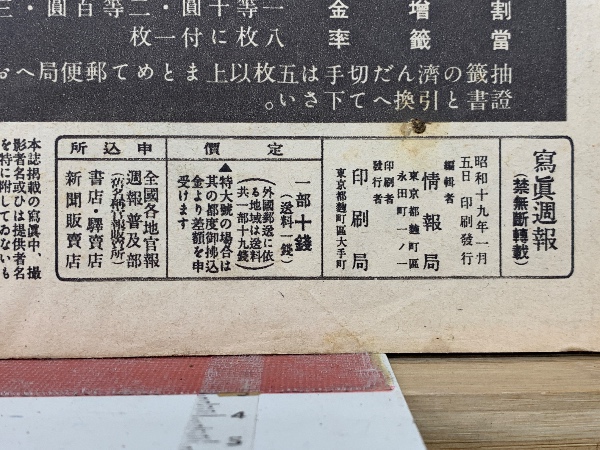 割增金　一等十圓・二等百圓・三
當籤率　八枚に付一枚
抽籤の濟んだ切手は五枚以上まとめて郵便局へお
證書と引換へて下さい。
寫眞週報
(禁無斷轉載)
昭和十九年一月
五日 印刷發行
編輯者
情報局
東京都麴町區
永田町一ノ一
印刷者
發行者
印刷局
東京都麴町區大手町
定價
一部十錢
(送料一錢)
(外國郵送に依
る地域は送料
共一部十九錢)
▲特大號の場合は
其の都度御拂込
金より差額を申
受けます
申込所
全國各地官報
週報普及部
書店・驛賣店
新聞販賣店
本誌掲載の寫眞中、撮
影者名或ひは提供者名
を特に附してゐないも
4
5